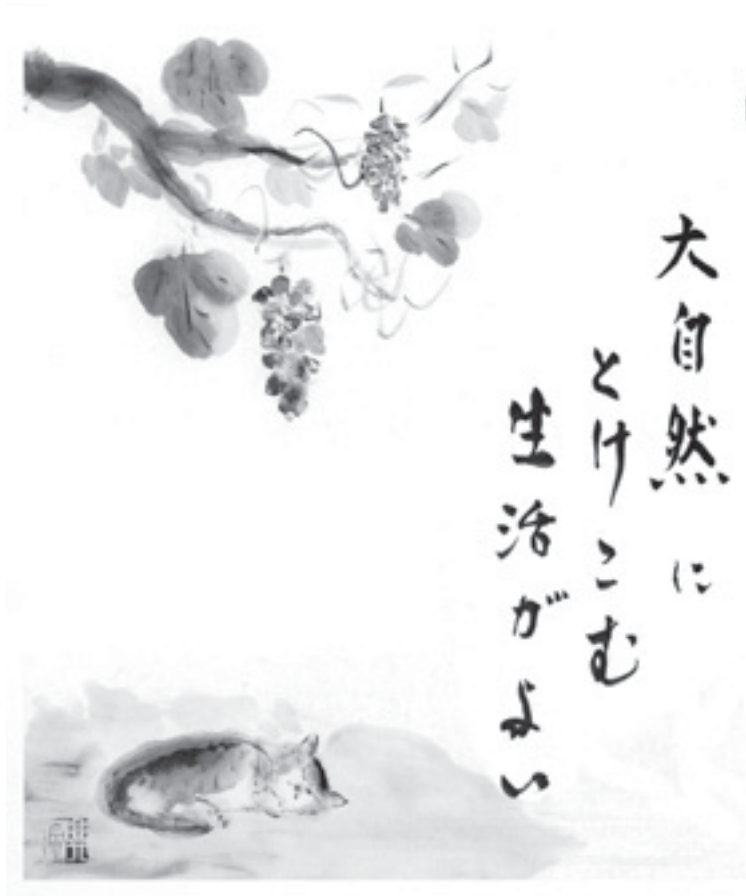 大自然に
とけこむ
生活がよい